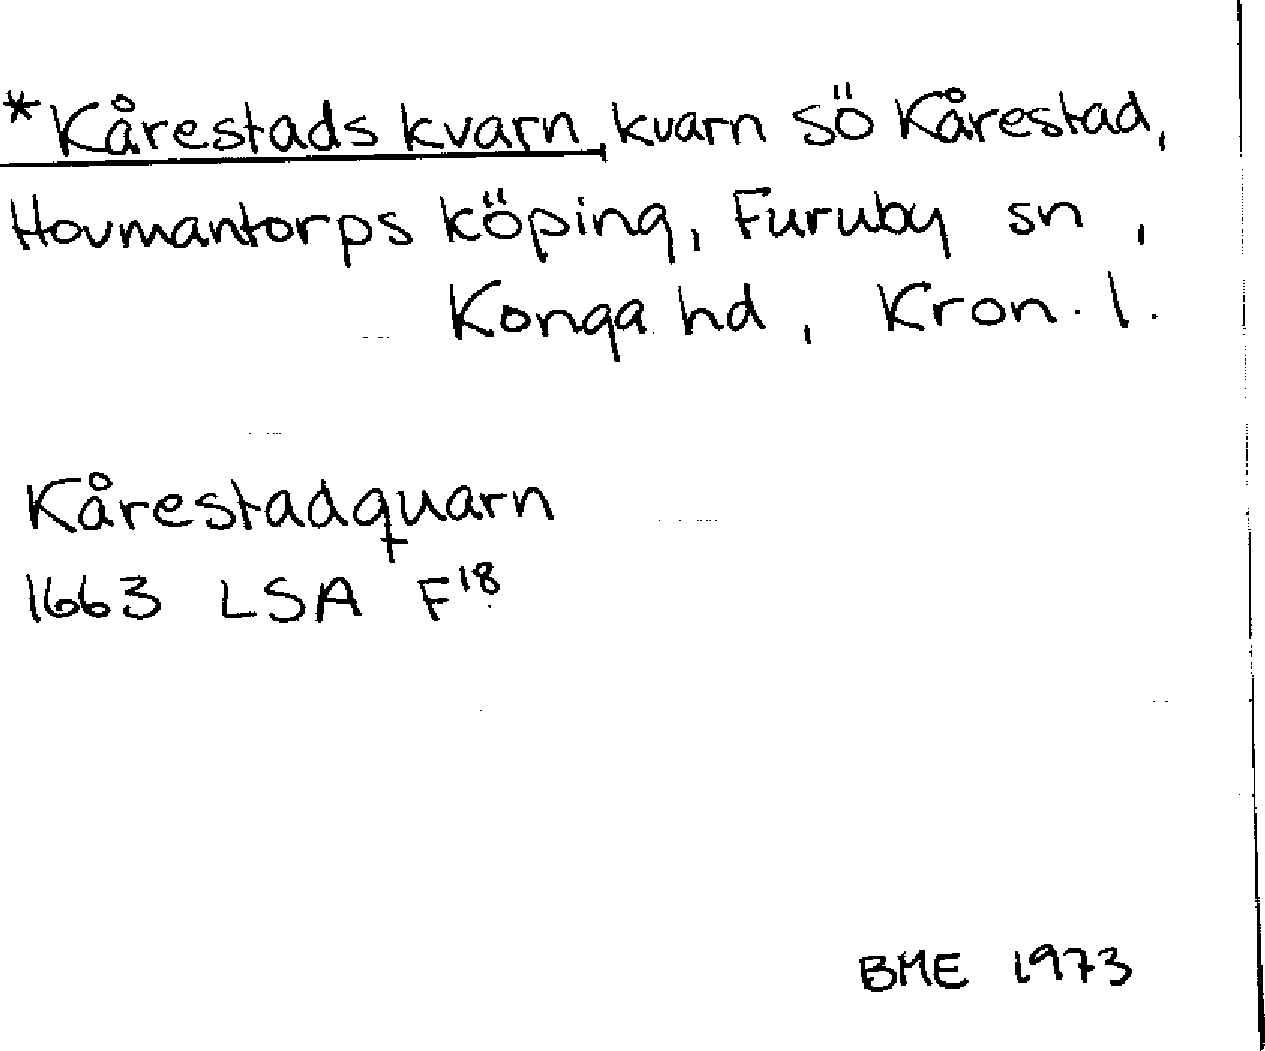 *Kårestads kvarn, kvarn sö Kårestad,
Hovmantorps köping, Furuby sn,
Konga hd, Kron. l.
Kårestadquarn
1663 LSA F18
BME 1973